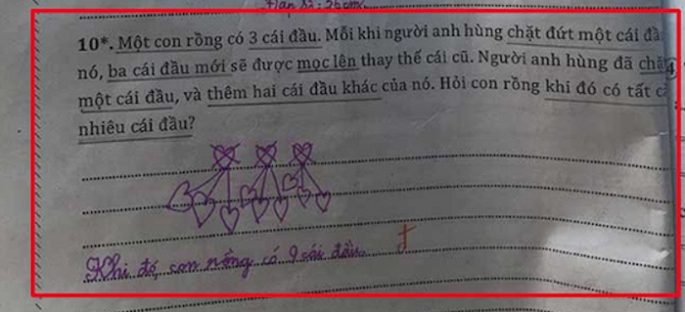 Đáp số: 26cm
10*. Một con rồng có 3 cái đầu. Mỗi khi người anh hùng chặt đứt một cái đầ
nó, ba cái đầu mới sẽ được mọc lên thay thế cái cũ. Người anh hùng đã chặt
một cái đầu, và thêm hai cái đầu khác của nó. Hỏi con rồng khi đó có tất c
nhiêu cái đầu?
Khi đó, con rồng có 9 cái đầu.